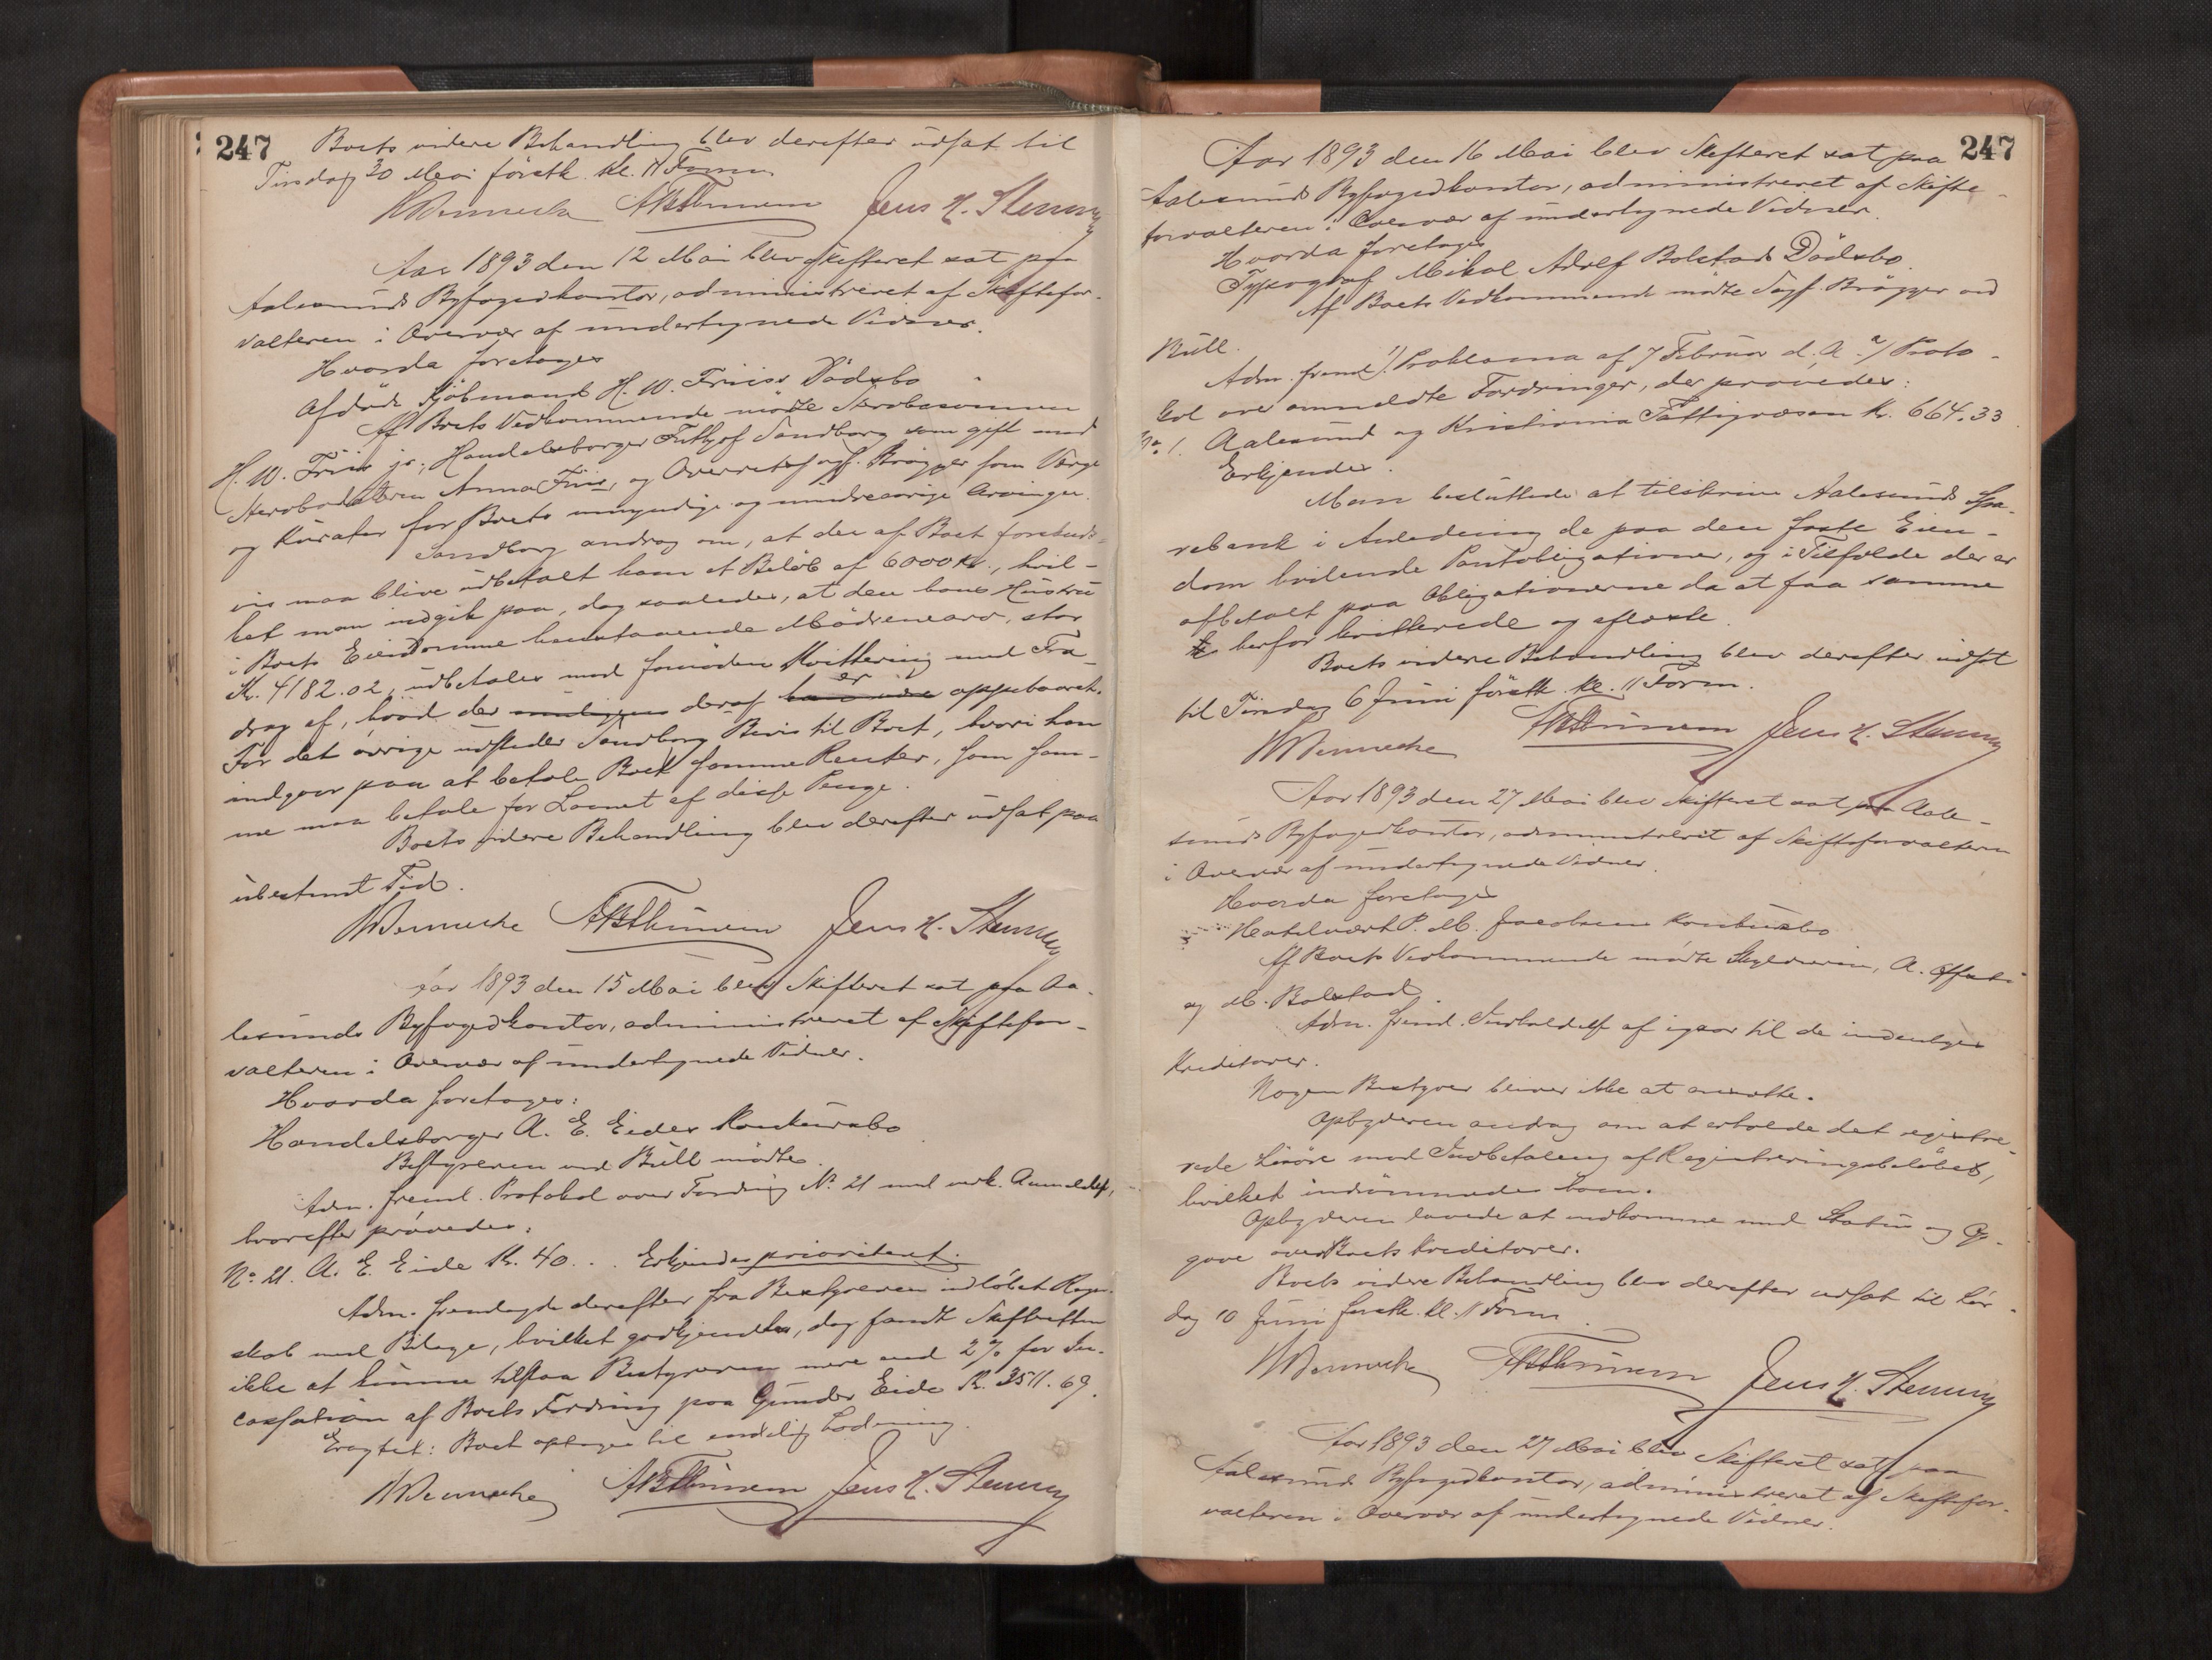 247
Boets videre Behandling blev derefter udsat til
Tirsdag 30 Mai förstk. kl. 11 Form.
Jens H. Stemm
Aar 1893 den 12 Mai blev Skifteret sat paa
Aalesunds Byfogedkontor, administreret af Skiftefor-
valteren i Overvær af undertegnede Vidner.
Hvorda foretoges
Afdøde Kjöbmand H. W. Friis's Dödsbo
Af Boets Vedkommende mödte Stervbosønnen
H. W. Friis jr., Handelsborger Fritjof Sandborg som gift med
Stervbodatteren Anna Friis, og Overretssagf. Brögger som Værge
og Kurator for Boets umyndige og mindreaarige Arvinger.
Sandborg androg om, at der af Boet forskuds-
vis maa blive udbetalt ham et Belöb af 6000 Kr., hvil-
ket man indgik paa, dog saaledes, at den hans Hustru
i Boets Eiendomme henstaaende Mödrenearv, stor
Kr. 4182.02, udbetales mod fornöden Kvittering med Fra-
drag af, hvad der deraf er oppebaaret.
For det övrige udsteder Sandborg Bevis til Boet, hvori han
indgaar paa at betale Boet samme Renter, som sam-
me maa betale for Laanet af disse Penge.
Boets videre Behandling blev derefter udsat paa
ubestemt Tid.
Jens H. Stemm
Aar 1893 den 15 Mai blev Skifteret sat paa Aa-
lesunds Byfogedkontor, administreret af Skiftefor-
valteren i Overvær af undertegnede Vidner.
Hvorda foretoges:
Handelsborger A. E. Eides Konkursbo
Bestyreren ved Bull mödte.
Adm. freml. Protokol over Fordring No. 21 med vedk. Anmeldelse,
hvorefter prövedes:
No. 21. A. E. Eide Kr. 40... Erkjendes prioriteret.
Adm. fremlagde derefter fra Bestyreren indlöbet Regn-
skab med Bilage, hvilket godkjendtes, dog fandt Skifteretten
ikke at kunne tilstaa Bestyreren mere end 2% for In-
cassation af Boets Fordring paa Gunder Eide Kr. 3511.69.
Eragtet: Boet optages til endelig Lodning.
Jens H. Stemm
247
Aar 1893 den 16 Mai blev Skifteret sat paa
Aalesunds Byfogedkontor, administreret af Skifte-
forvalteren i Overvær af undertegnede Vidner.
Hvorda foretoges
Typograf Mikal Adolf Bolstads Dödsbo.
Af Boets Vedkommende mödte Sagf. Brögger ved
Bull.
Adm. freml. 1) Proklama af 7 Februar d. A. 2) Proto-
kol over anmeldte Fordringer, der prövedes:
No. 1. Aalesund og Kristiania Fattigvæsen Kr. 664.33
Erkjendes.
Man besluttede at tilskrive Aalesunds Spa-
rebank i Anledning de paa den faste Eien-
dom hvilende Pantobligationer, og i Tilfælde der er
afbetalt paa Obligationerne da at faa samme
herfor kvitterede og aflæste.
Boets videre Behandling blev derefter udsat
til Tirsdag 6 Juni förstk. kl. 11 Form.
Jens H. Stemm
Aar 1893 den 27 Mai blev Skifteret sat paa Aale-
sunds Byfogedkontor, administreret af Skifteforvalteren
i Overvær af undertegnede Vidner.
Hvorda foretoges
Hotelvært P. M. Jacobsens Konkursbo
Af Boets Vedkommende mödte Skyldneren, A.
og M. Bolstad.
Adm. freml. Indkaldelse af igaar til de indenbyes
Kreditorer.
Nogen Bestyrer bliver ikke at ansætte.
Opbyderen androg om at erholde det registre-
rede Lösöre mod Indbetaling af Registreringsbelöbet,
hvilket indrömmedes ham.
Opbyderen lovede at indkomme med Status og Op-
gave over Boets Kreditorer.
Boets videre Behandling blev derefter udsat til Lör-
dag 10 Juni förstk. kl. 11 Form.
Jens H. Stemm
Aar 1893 den 27 Mai blev Skifteret sat paa
Aalesunds Byfogedkontor, administreret af Skiftefor-
valteren i Overvær af undertegnede Vidner.